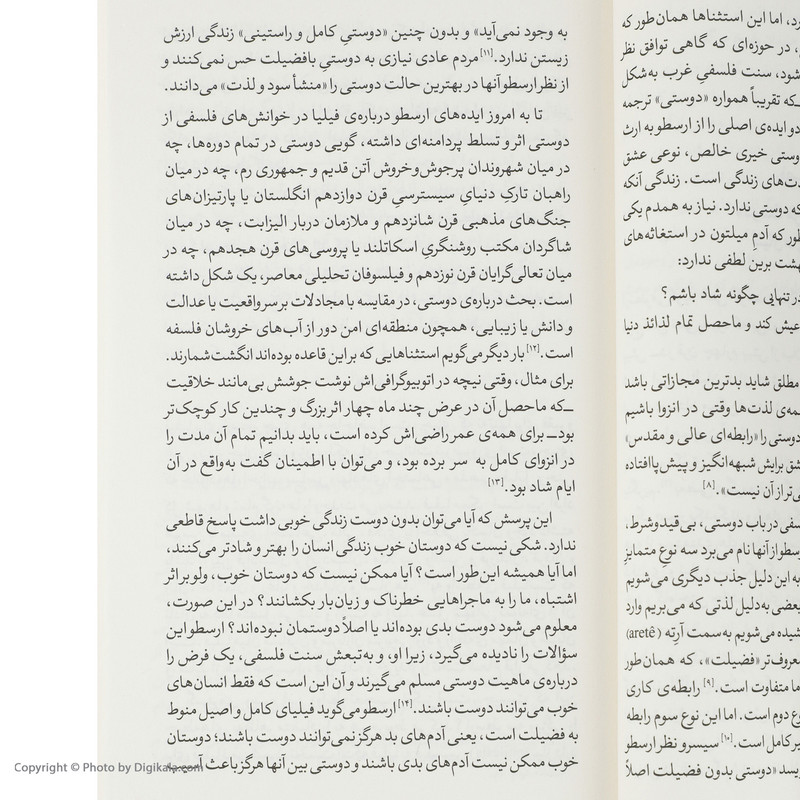 به وجود نمی‌آید» و بدون چنین «دوستیِ کامل و راستینی» زندگی ارزش
زیستن ندارد.[۱۱] مردم عادی نیازی به دوستیِ بافضیلت حس نمی‌کنند و
از نظر ارسطو آنها در بهترین حالت دوستی را «منشأ سود و لذت» می‌دانند.
تا به امروز ایده‌های ارسطو درباره‌ی فیلیا در خوانش‌های فلسفی از
دوستی اثر و تسلط پردامنه‌ای داشته، گویی دوستی در تمام دوره‌ها، چه
در میان شهروندان پرجوش‌وخروش آتن قدیم و جمهوری رم، چه در میان
راهبان تارکِ دنیایِ سیسترسیِ قرن دوازدهم انگلستان یا پارتیزان‌های
جنگ‌های مذهبی قرن شانزدهم و ملازمان دربار الیزابت، چه در میان
شاگردان مکتب روشنگریِ اسکاتلند یا پروسی‌های قرن هجدهم، چه در
میان تعالی‌گرایان قرن نوزدهم و فیلسوفان تحلیلی معاصر، یک شکل داشته
است. بحث درباره‌ی دوستی، در مقایسه با مجادلات بر سر واقعیت یا عدالت
و دانش یا زیبایی، همچون منطقه‌ای امن دور از آب‌های خروشان فلسفه
است.[۱۲] بار دیگر می‌گویم استثناهایی که بر این قاعده بوده‌اند انگشت‌شمارند.
برای مثال، وقتی نیچه در اتوبیوگرافی‌اش نوشت جوشش بی‌مانند خلاقیت
ـ که ماحصل آن در عرض چند ماه چهار اثر بزرگ و چندین کار کوچک‌تر
بود ـ برای همه‌ی عمر راضی‌اش کرده است، باید بدانیم تمام آن مدت را
در انزوای کامل به سر برده بود، و می‌توان با اطمینان گفت به‌واقع در آن
ایام شاد بود.[۱۳]
این پرسش که آیا می‌توان بدون دوست زندگی خوبی داشت پاسخ قاطعی
ندارد. شکی نیست که دوستان خوب زندگی انسان را بهتر و شادتر می‌کنند،
اما آیا همیشه این‌طور است؟ آیا ممکن نیست که دوستان خوب، ولو بر اثر
اشتباه، ما را به ماجراهایی خطرناک و زیان‌بار بکشانند؟ در این صورت،
معلوم می‌شود دوست بدی بوده‌اند یا اصلاً دوستمان نبوده‌اند؟ ارسطو این
سؤالات را نادیده می‌گیرد، زیرا او، و به‌تبعش سنت فلسفی، یک فرض را
درباره‌ی ماهیت دوستی مسلم می‌گیرند و آن این است که فقط انسان‌های
خوب می‌توانند دوست باشند.[۱۴] ارسطو می‌گوید فیلیای کامل و اصیل منوط
به فضیلت است، یعنی آدم‌های بد هرگز نمی‌توانند دوست باشند؛ دوستان
خوب ممکن نیست آدم‌های بدی باشند و دوستی بین آنها هرگز باعث
رد، اما این استثناها همان‌طور که
، در حوزه‌ای که گاهی توافق نظر
شود، سنت فلسفیِ غرب به شکل
که تقریباً همواره «دوستی» ترجمه
دو ایده‌ی اصلی را از ارسطو به ارث
وستی خیری خالص، نوعی عشق
ت‌های زندگی است. زندگی آنکه
که دوستی ندارد. نیاز به همدم یکی
طور که آدمِ میلتون در استغاثه‌های
هشت برین لطفی ندارد:
در تنهایی چگونه شاد باشم؟
عیش کند و ماحصل تمام لذائذ دنیا
مطلق شاید بدترین مجازاتی باشد
مه‌ی لذت‌ها وقتی در انزوا باشیم
دوستی را «رابطه‌ای عالی و مقدس»
شق برایش شبهه‌انگیز و پیش‌پاافتاده
ی‌تر از آن نیست».[۸]
سفی در باب دوستی، بی‌قیدوشرط،
رسطو از آنها نام می‌برد سه نوع متمایز
به این دلیل جذب دیگری می‌شویم
بعضی به‌دلیل لذتی که می‌بریم وارد
شیده می‌شویم به‌سمت آرِته (aretē)
معروف‌تر «فضیلت»، که همان‌طور
ما متفاوت است.[۹] رابطه‌ی کاری
وع دوم است. اما این نوع سوم رابطه
یر کامل است.[۱۰] سیسرو نظر ارسطو
یسد «دوستی بدون فضیلت اصلاً
Copyright © Photo by Digikala.com